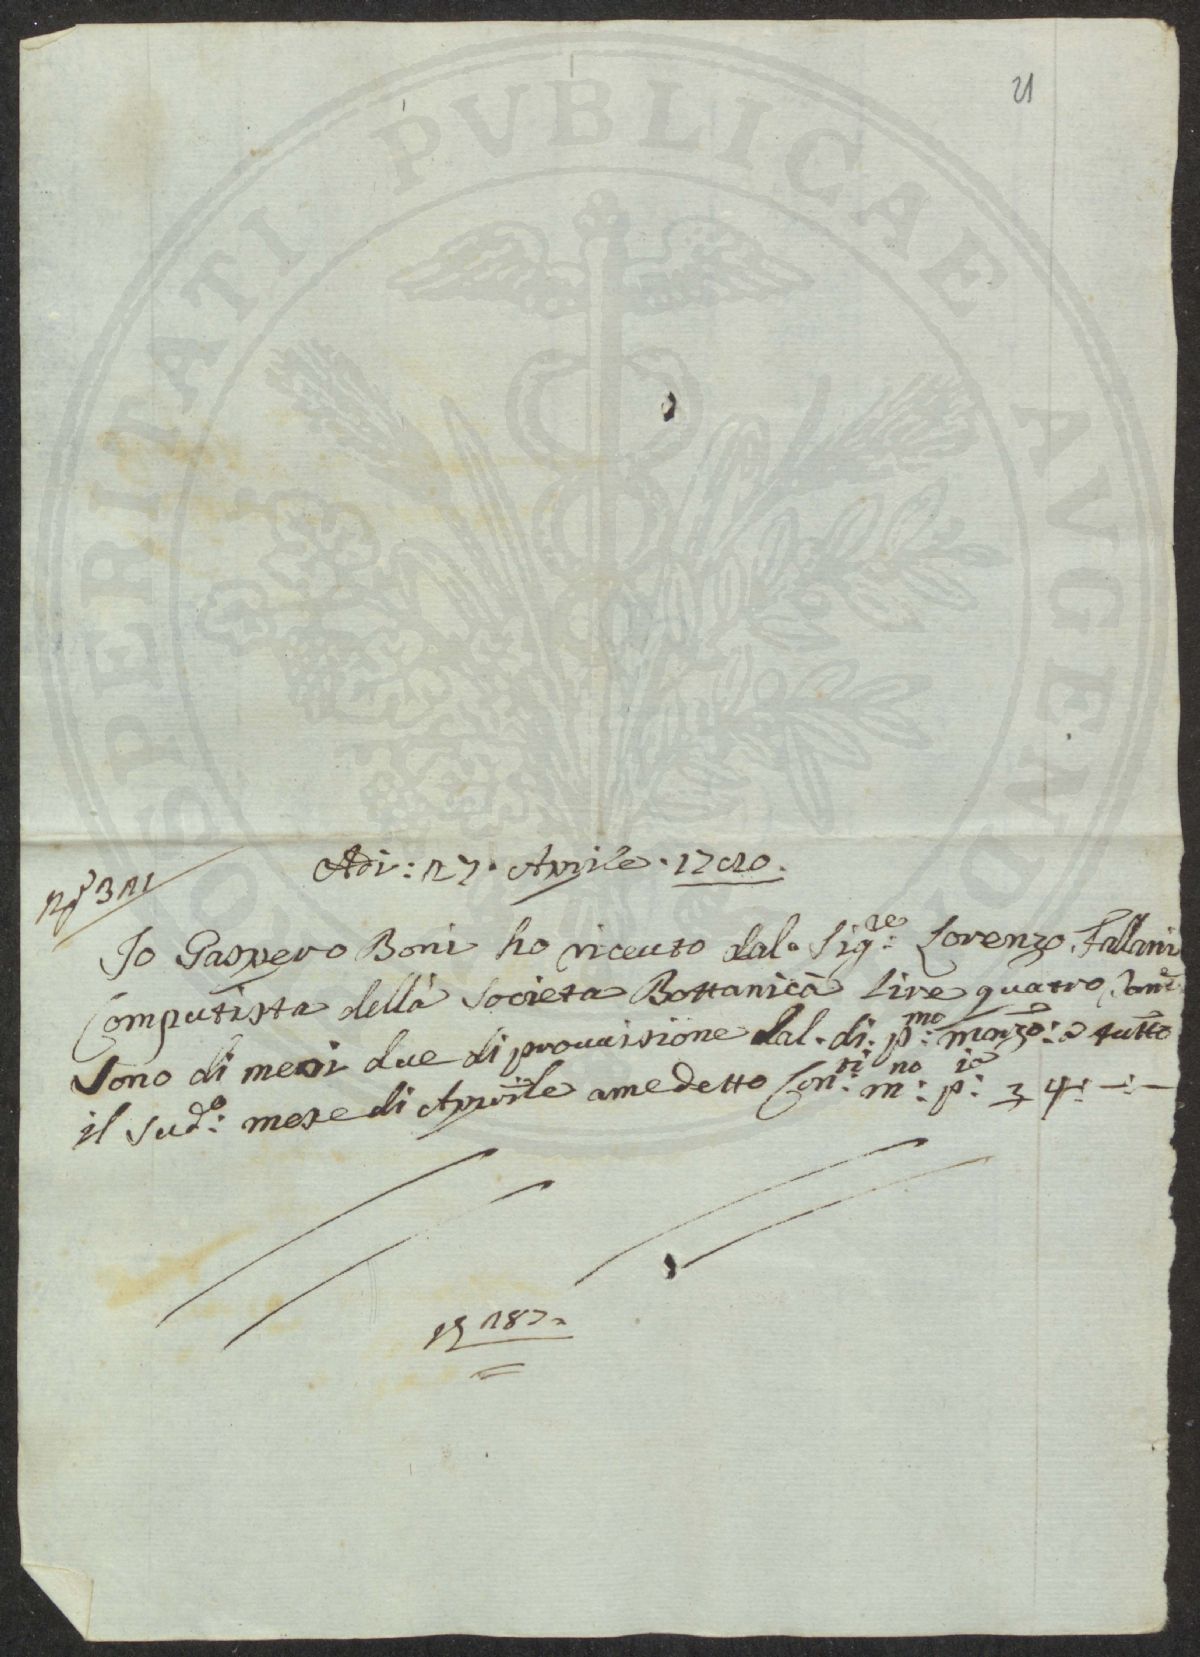 21
PROSPERITATI PVBLICAE AVGENDAE
Adi: 27. Aprile. 1720.
Io Gaspero Boni ho riceuto dal. Sig.re Lorenzo Fallani
Computista della Societa Bottanica Lire quatro,
Sono di mesi due di prouuisione dal. di. p.mo marzo: a tutto
il sud.o mese di Aprile amedetto Con.ti m.no p.ia £ 4:—:—